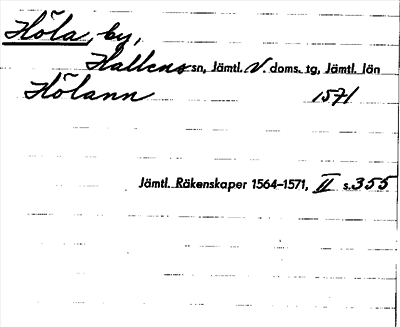 Höla, by,
Hallens sn, Jämtl. V. doms. tg, Jämtl. län
Hölann 1571
Jämtl. Räkenskaper 1564–1571, II s. 355